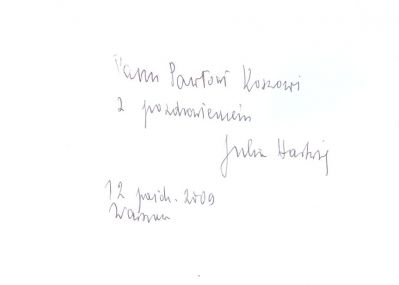 Panu Pawłowi Koszowi
z pozdrowieniem
Julia Hartwig
12 paźdz. 2009
Warszawa